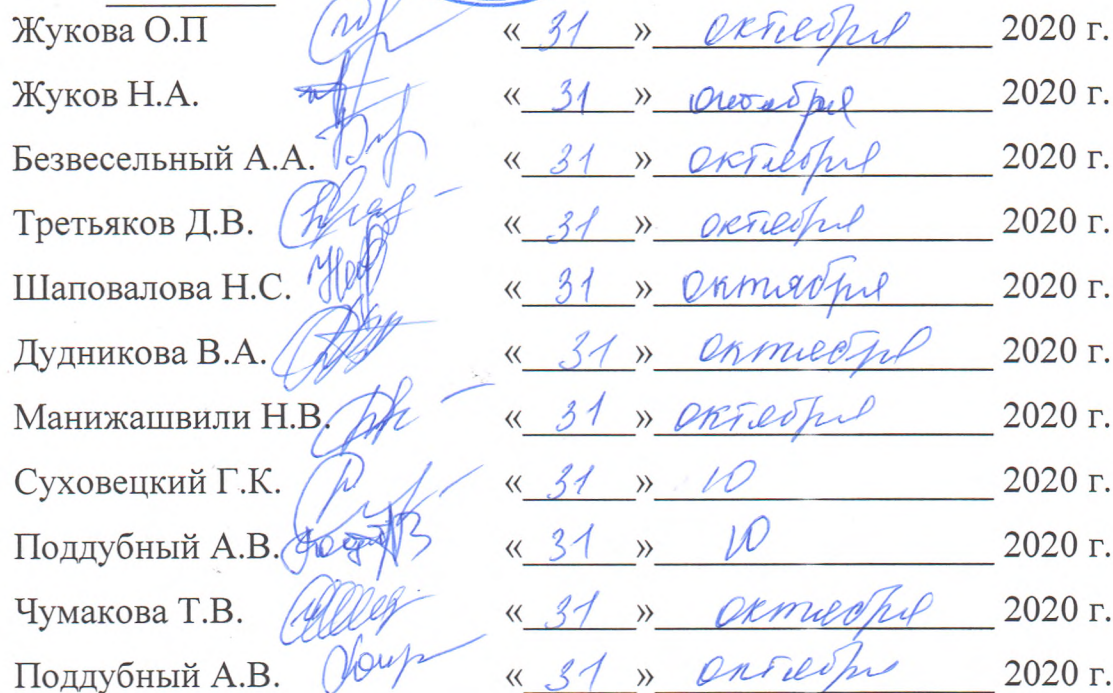 Жукова О.П « 31 » октября 2020 г.
Жуков Н.А. « 31 » октября 2020 г.
Безвесельный А.А. « 31 » октября 2020 г.
Третьяков Д.В. « 31 » октября 2020 г.
Шаповалова Н.С. « 31 » октября 2020 г.
Дудникова В.А. « 31 » октября 2020 г.
Манижашвили Н.В. « 31 » октября 2020 г.
Суховецкий Г.К. « 31 » 10 2020 г.
Поддубный А.В. « 31 » 10 2020 г.
Чумакова Т.В. « 31 » октября 2020 г.
Поддубный А.В. « 31 » октября 2020 г.